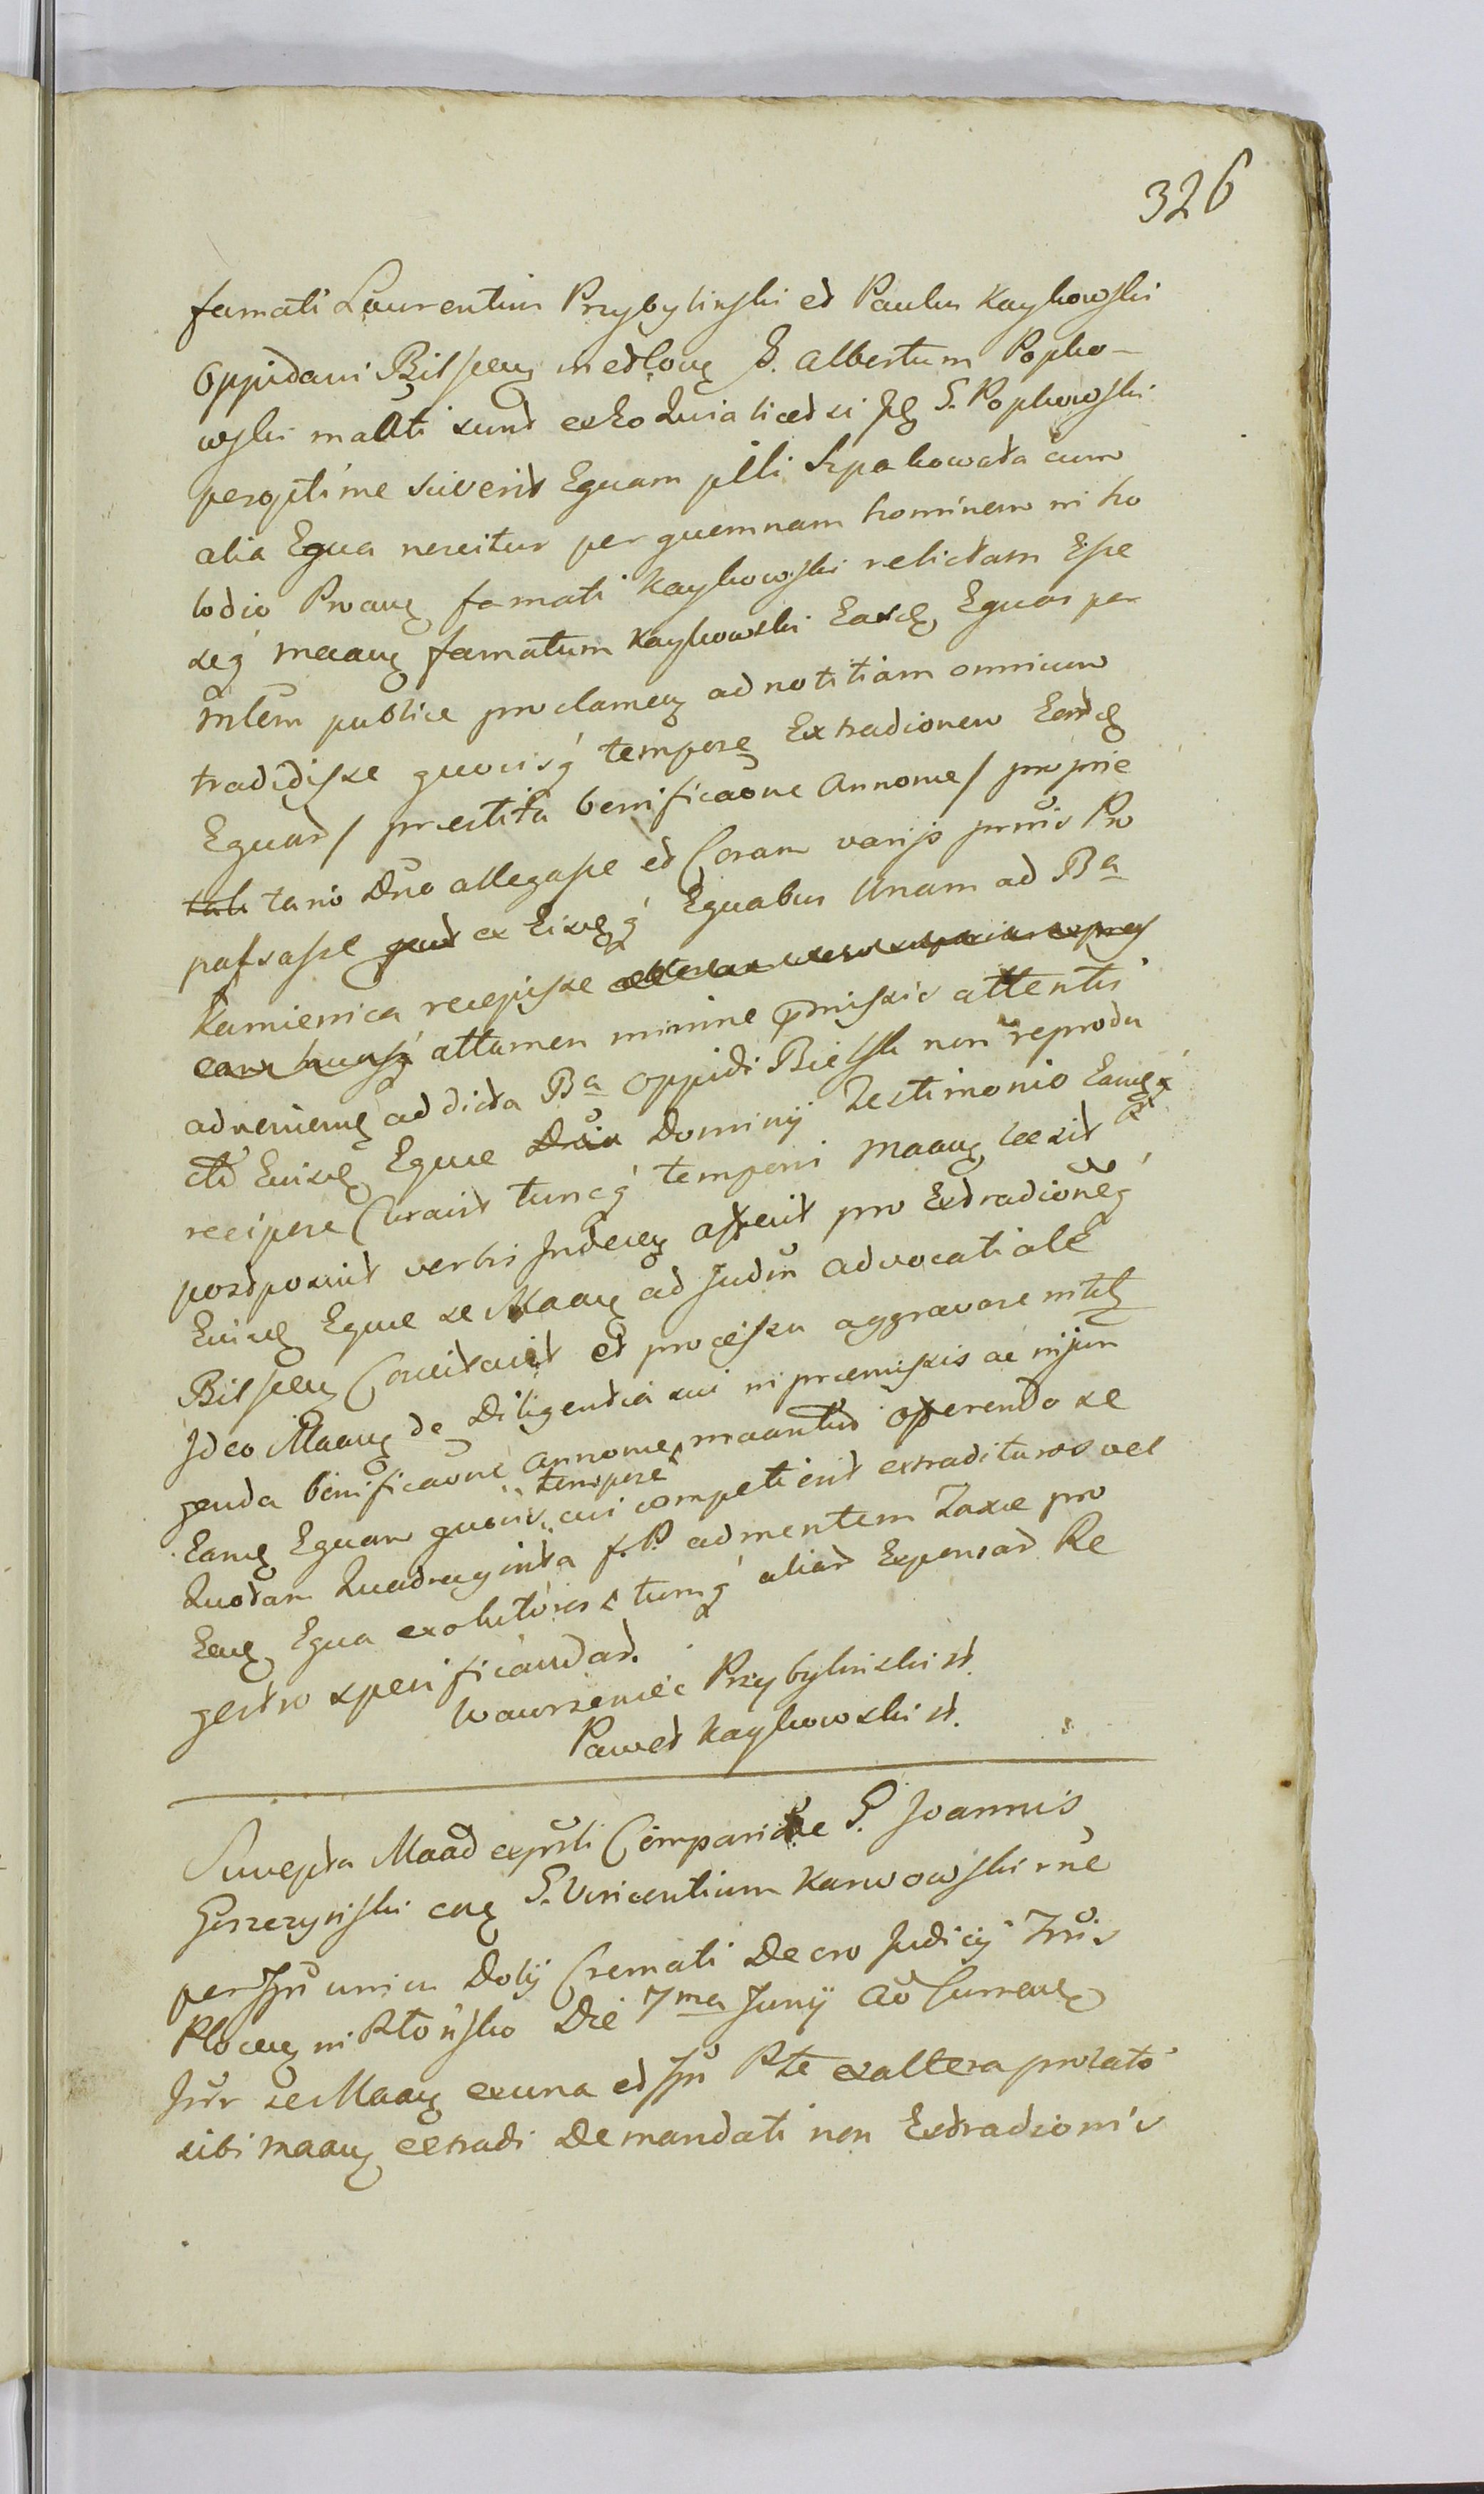 326
famati Laurentius Przybylinski et Paulus Kaykowski
Oppidani Bilscens in et cont G. Albertum Popko-
wski mãti sunt ex eo Quia licet si Idem G. Popkowski
per optime sciverit Equam pilli Szpakowata cum
alia Equa nescitur per quemnam hominem in ho
lodio Proans famati Kaykowski relictam Esse
seq maans famatum Kaykowski Easd Equas per
mlem publice proclamen ad notitiam omnium
tradidisse quovisq tempore Extradionem Eard
Equar / prestita bonificaone Annonae / proprie
tario Dno allegasse et Coram varijs prmis Pro
fassasse ex Eisdq Equabus Unam ad Ba
Kamienica recepisse
attamen minime pmissis attentis
adveniens ad dicta Ba Oppidi Bielsk non reprodu
cto Eiusd Equae Dominij Testimonio Eamq
recipere Curavit tuncq tempori Maans laesit et
postposuit verbis Indecen affecit pro Extradioneq
Eiusd Equae se Maans ad Judm advocatiale
Bilscen Concitavit et processu aggravare nitit
Ideo Maans de Diligentia sui in praemissis ac injun
genda bonificaone Annonae maantur offerendo se
Eamd Equam quovis tempore cui competierit extradituros vel
Quotam Quadraginta f. P. ad mentem Taxae pro
Ead Equa exoluturos tumq alias Expensas Re
gestro specificandas.
Wawrzeniec Przybylinski st.
Paweł Kaykowski st.
Suscepta Maad expulsi Comparitae G. Joannis
Gorzczynski cont G. Vincentium Karwowski rne
per Ipm unius Dolij Cremati Decro Judicij Trris
Plocens in Płońsko Die 7ma Junij Ao Currenti
Jnr se Maans ex una et Ipm Pte ex altera prolato
sibi maans extradi Demandati non Extradionis